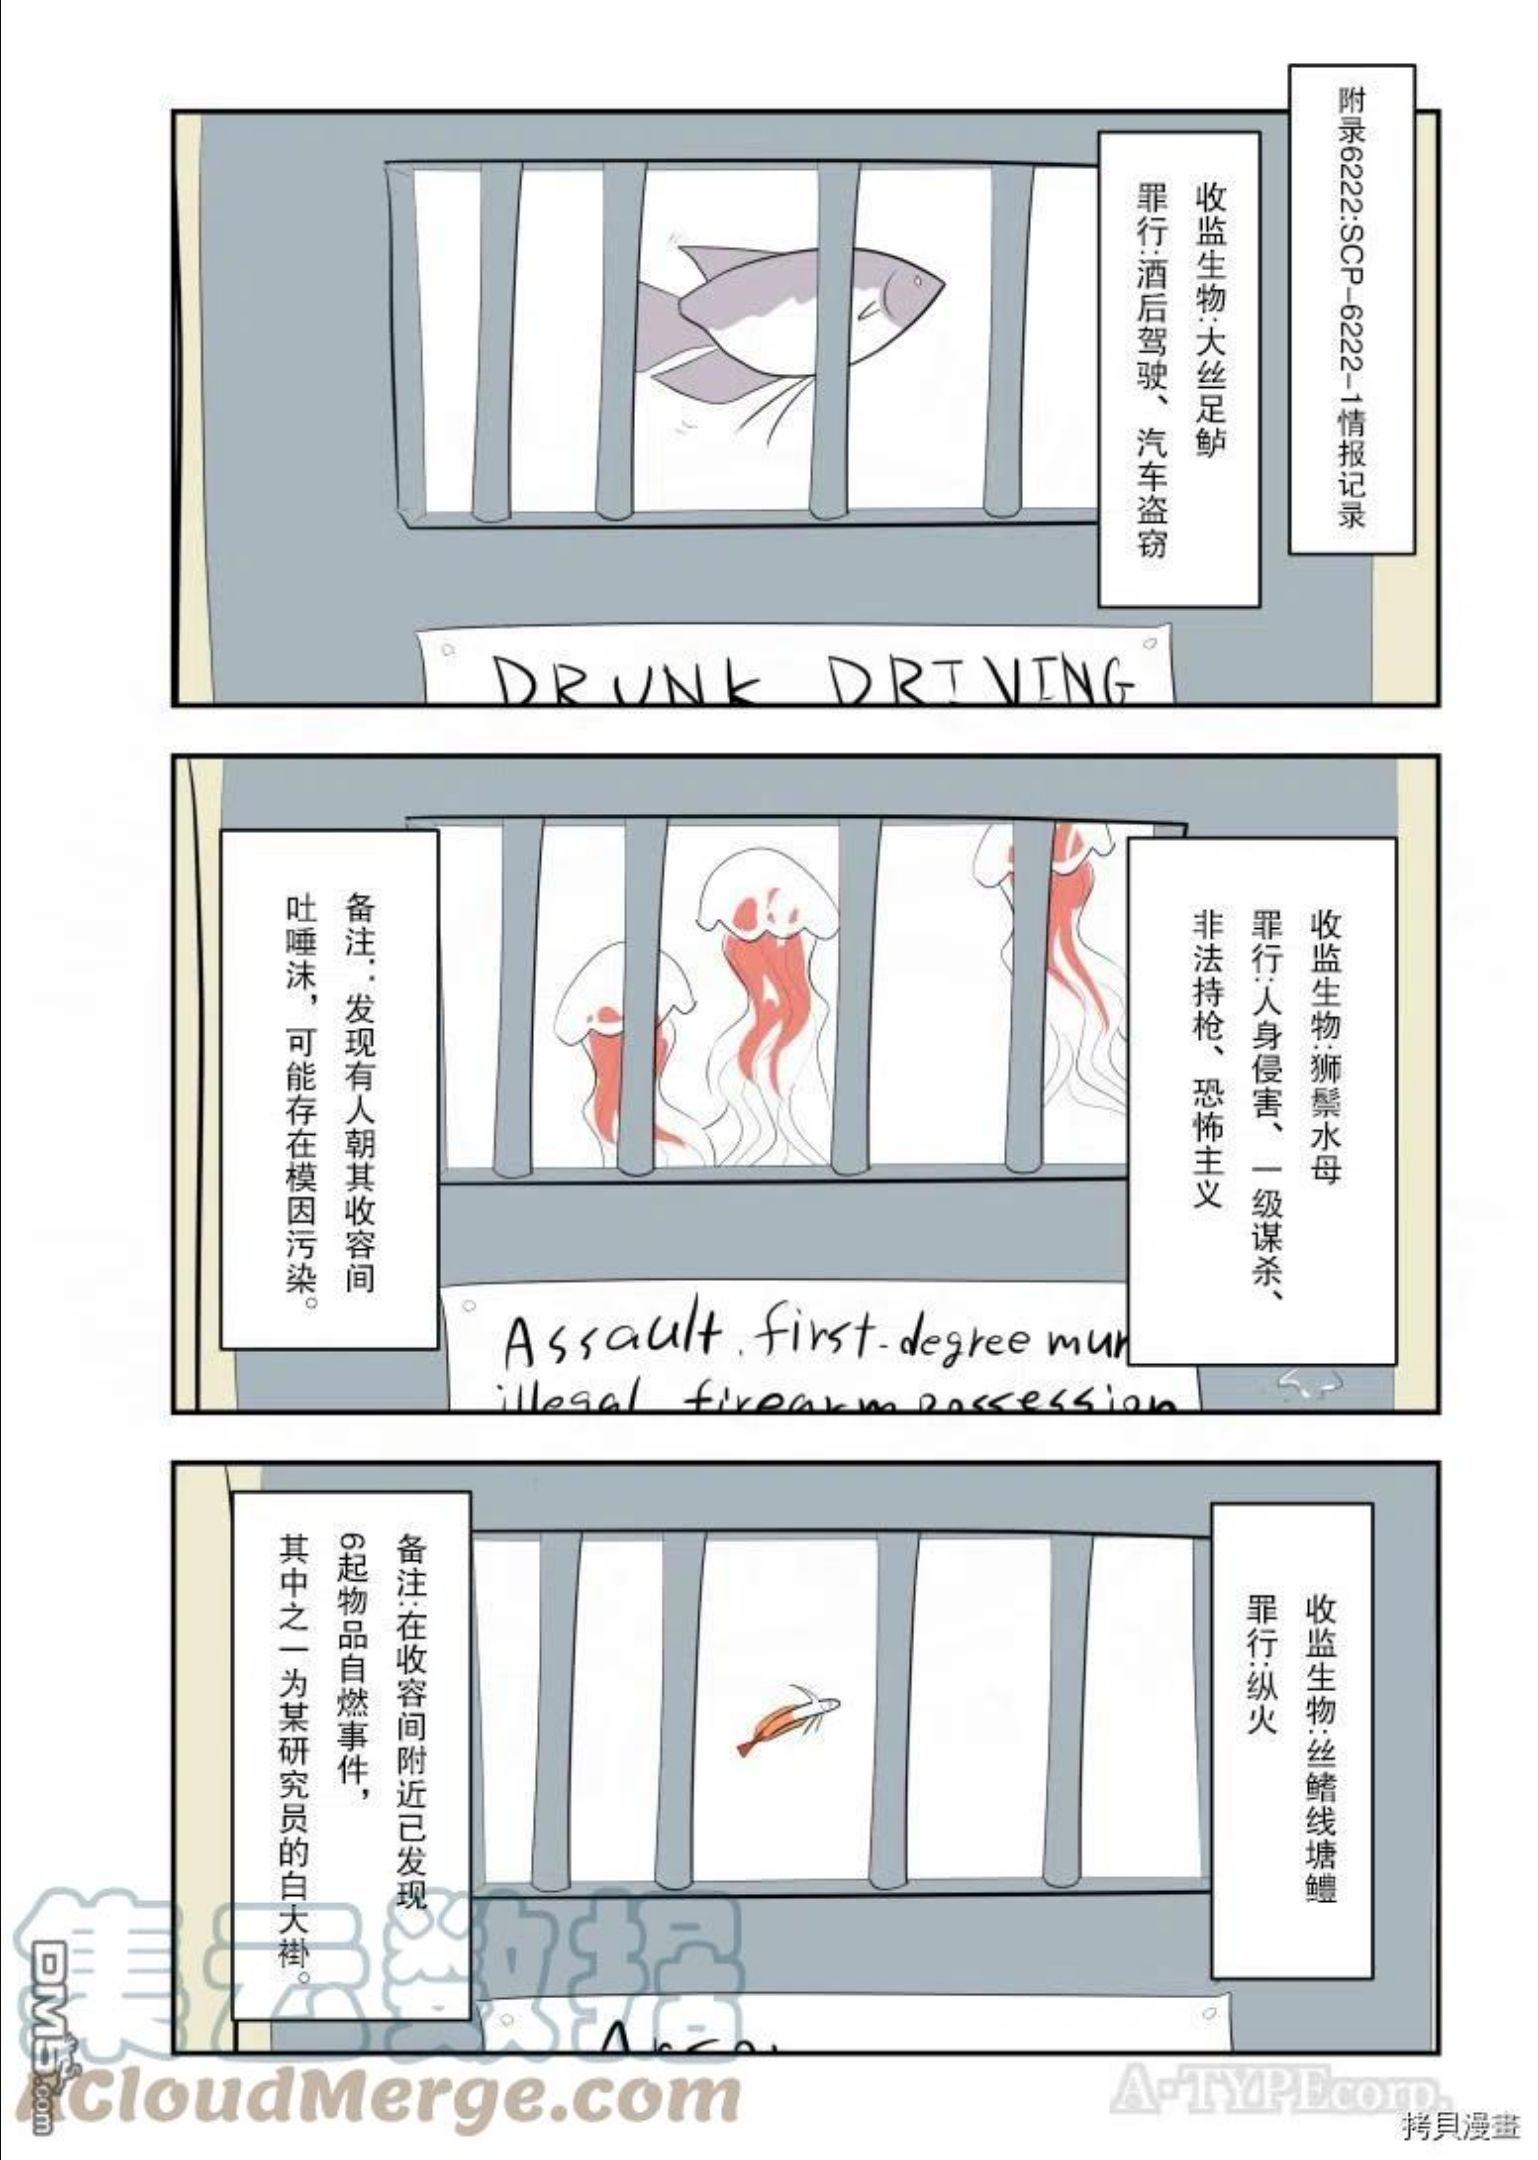 附录6222:SCP-6222-1情报记录
收监生物:大丝足鲈
罪行:酒后驾驶、汽车盗窃
DRUNK DRIVING
收监生物:狮鬃水母
罪行:人身侵害、一级谋杀、
非法持枪、恐怖主义
备注:发现有人朝其收容间
吐唾沫,可能存在模因污染。
Assault, first-degree mur
illegal firearm possession
收监生物:丝鳍线塘鳢
罪行:纵火
备注:在收容间附近已发现
6起物品自燃事件,
其中之一为某研究员的白大褂。
Arson
集云数据
ACloudMerge.com
DM5.com
A-TYPEcorp.
拷貝漫畫